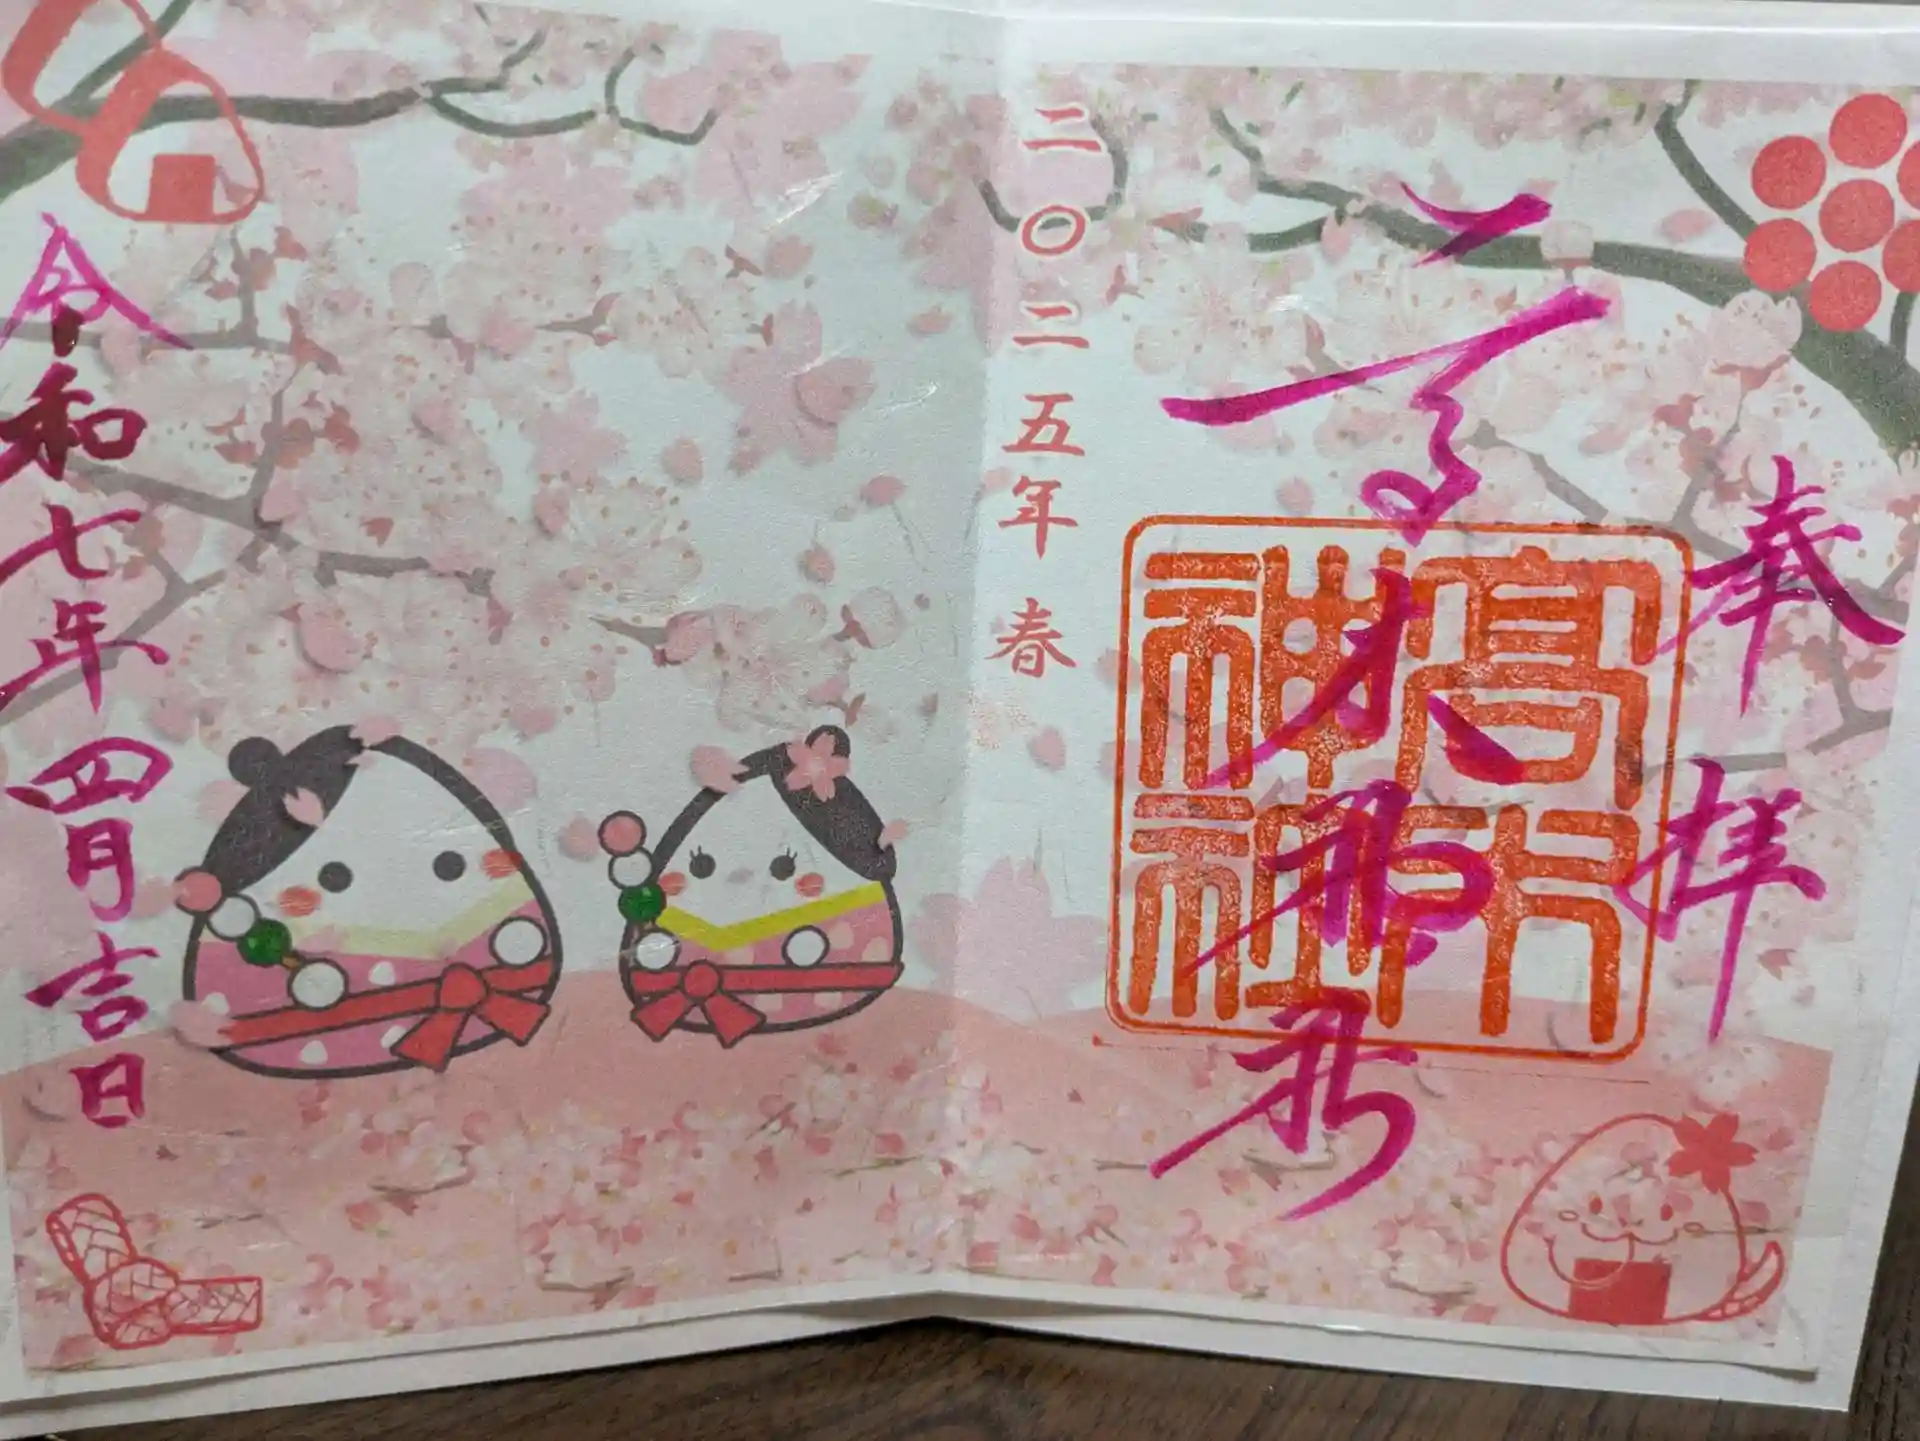 奉拝
高木神社
高木神社
二〇二五年 春
令和七年 四月吉日